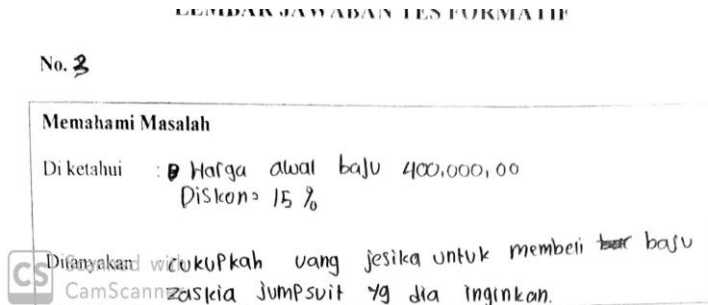 LEMBAR JAWABAN TES FORMATIF
No. 3
Memahami Masalah
Di ketahui : Harga awal baju 400.000,00
Diskon = 15 %
Ditanyakan cukupkah uang jesika untuk membeli baju
zaskia jumpsuit yg dia inginkan.
CS CamScanner